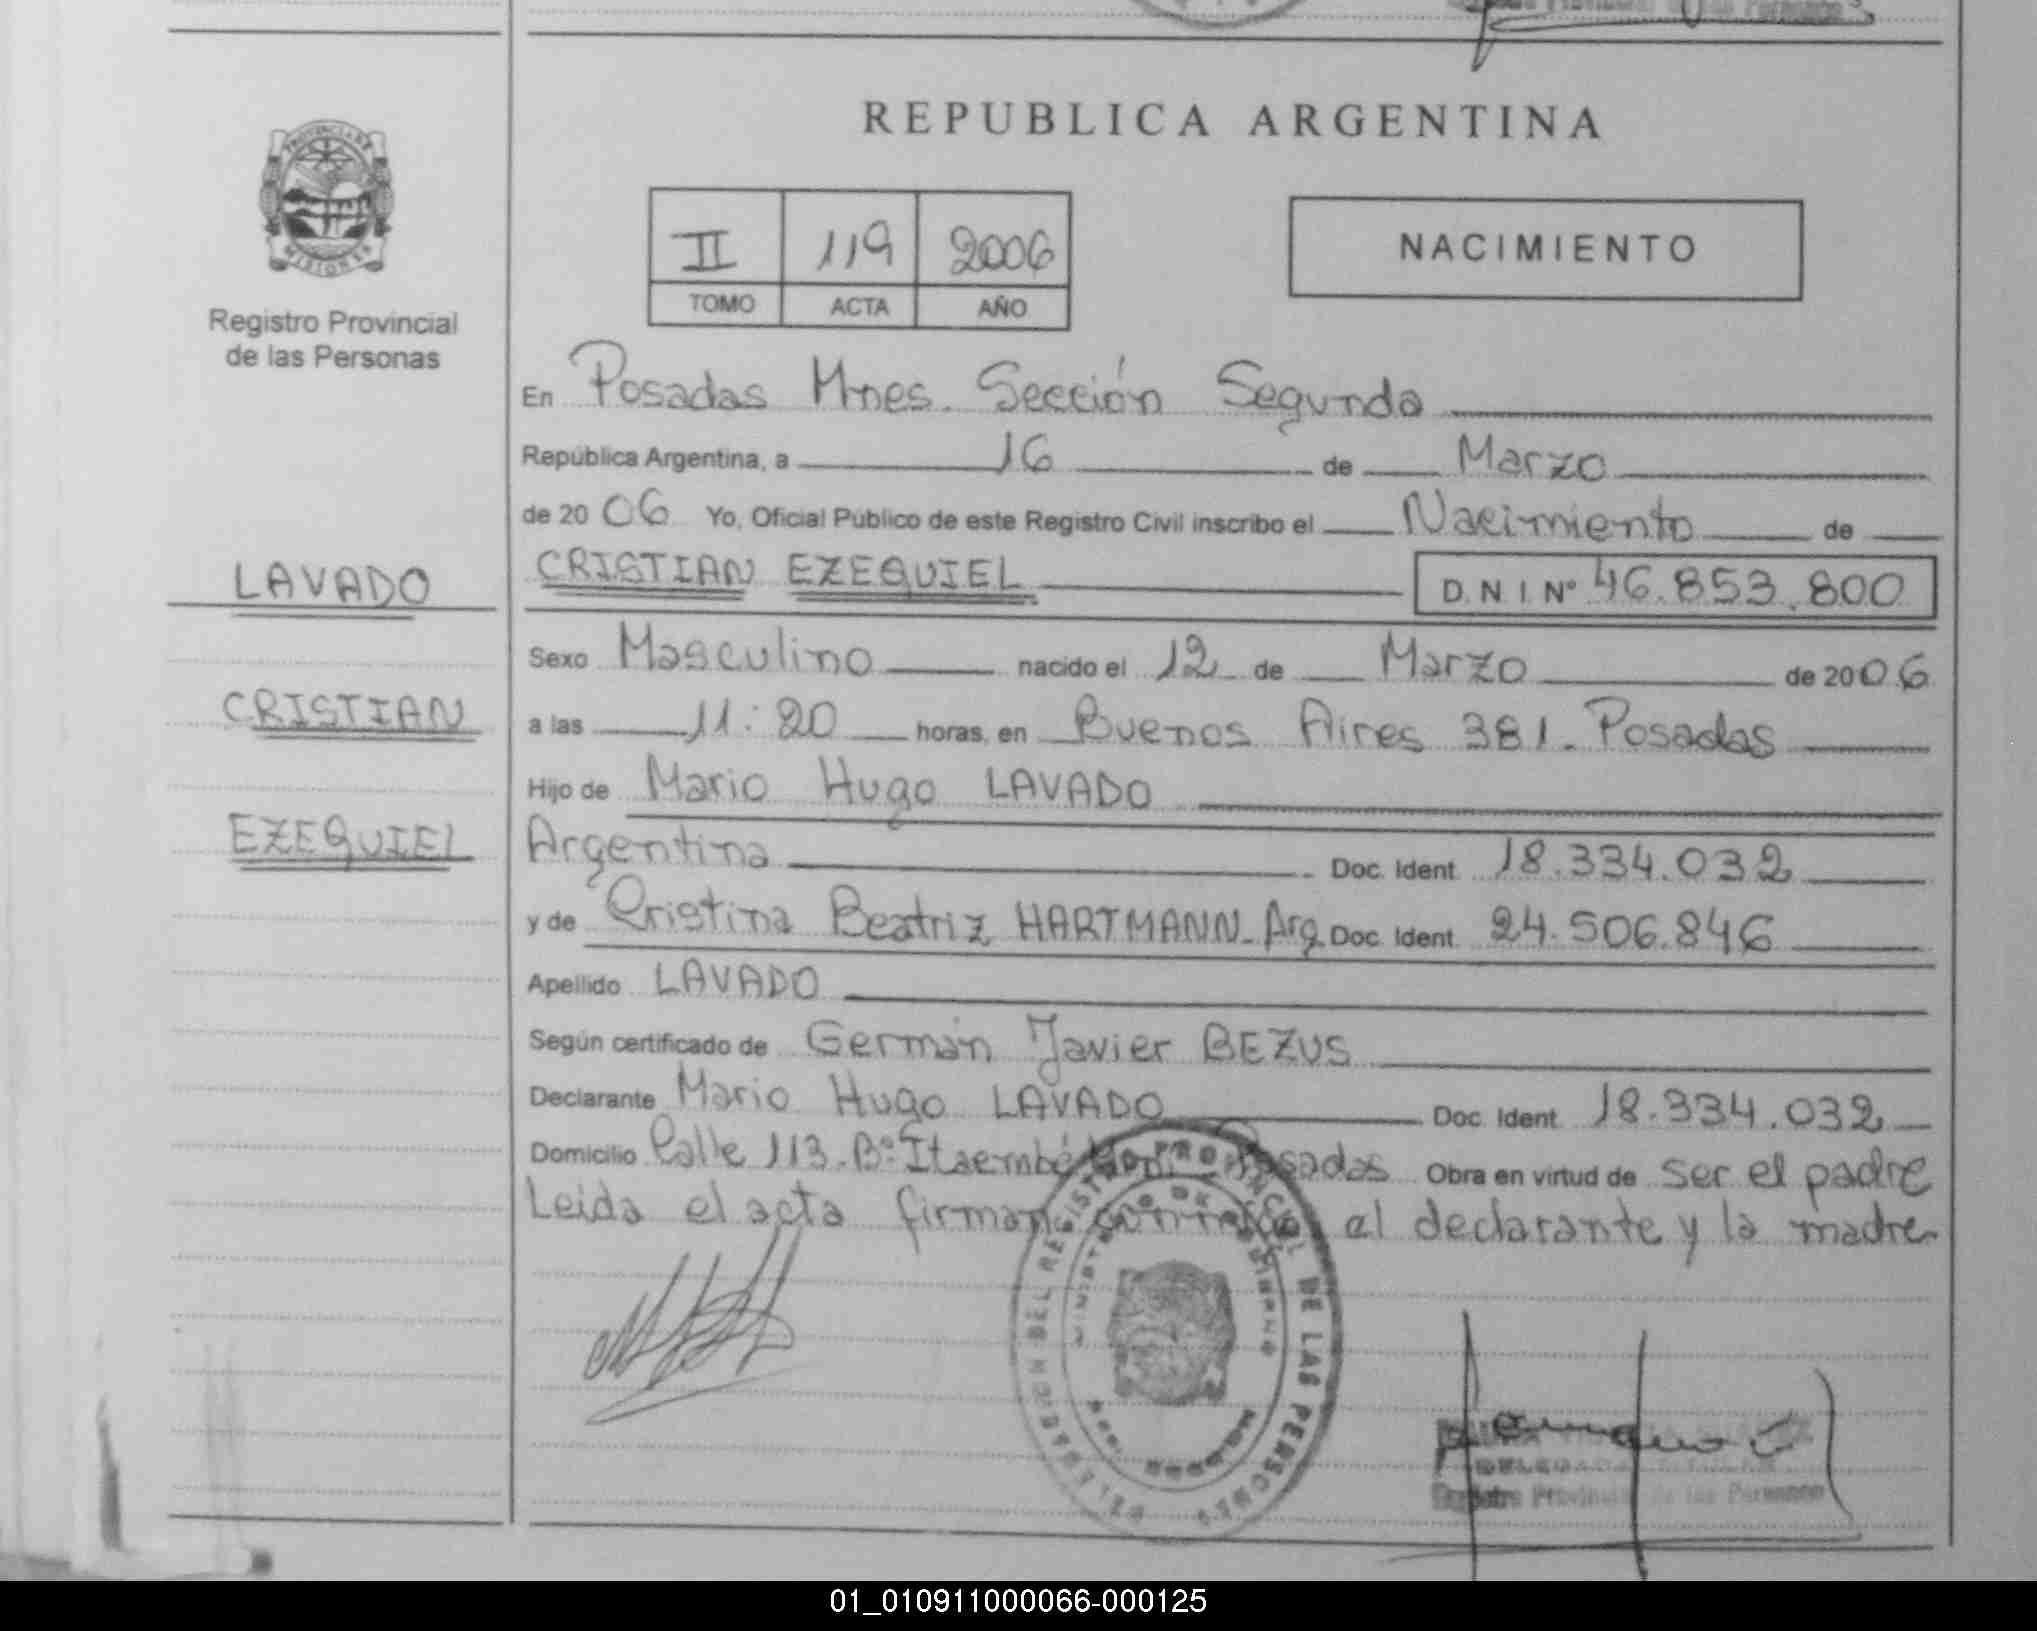 Registro Provincial
de las Personas
LAVADO
CRISTIAN
EZEQUIEL
REPUBLICA ARGENTINA
II 119 2006
TOMO ACTA AÑO
NACIMIENTO
En Posadas Mnes. Sección Segunda
República Argentina, a 16 de Marzo
de 2006 Yo, Oficial Público de este Registro Civil inscribo el Nacimiento de
CRISTIAN EZEQUIEL D. N. I. Nº 46.853.800
Sexo Masculino nacido el 12 de Marzo de 2006
a las 11:20 horas, en Buenos Aires 381. Posadas
Hijo de Mario Hugo LAVADO
Argentina Doc. Ident. 18.334.032
y de Cristina Beatriz HARTMANN. Arg. Doc. Ident. 24.506.846
Apellido LAVADO
Según certificado de Germán Javier BEZUS
Declarante Mario Hugo LAVADO Doc. Ident. 18.334.032
Domicilio Calle 113. Bº Itaembé Posadas Obra en virtud de ser el padre
Leida el acta firman conmigo el declarante y la madre
PROVINCIA DE MISIONES
DELEGACION DEL REGISTRO PROVINCIAL DE LAS PERSONAS
MINISTERIO DE GOBIERNO
Registro Provincial de las Personas
01_010911000066-000125